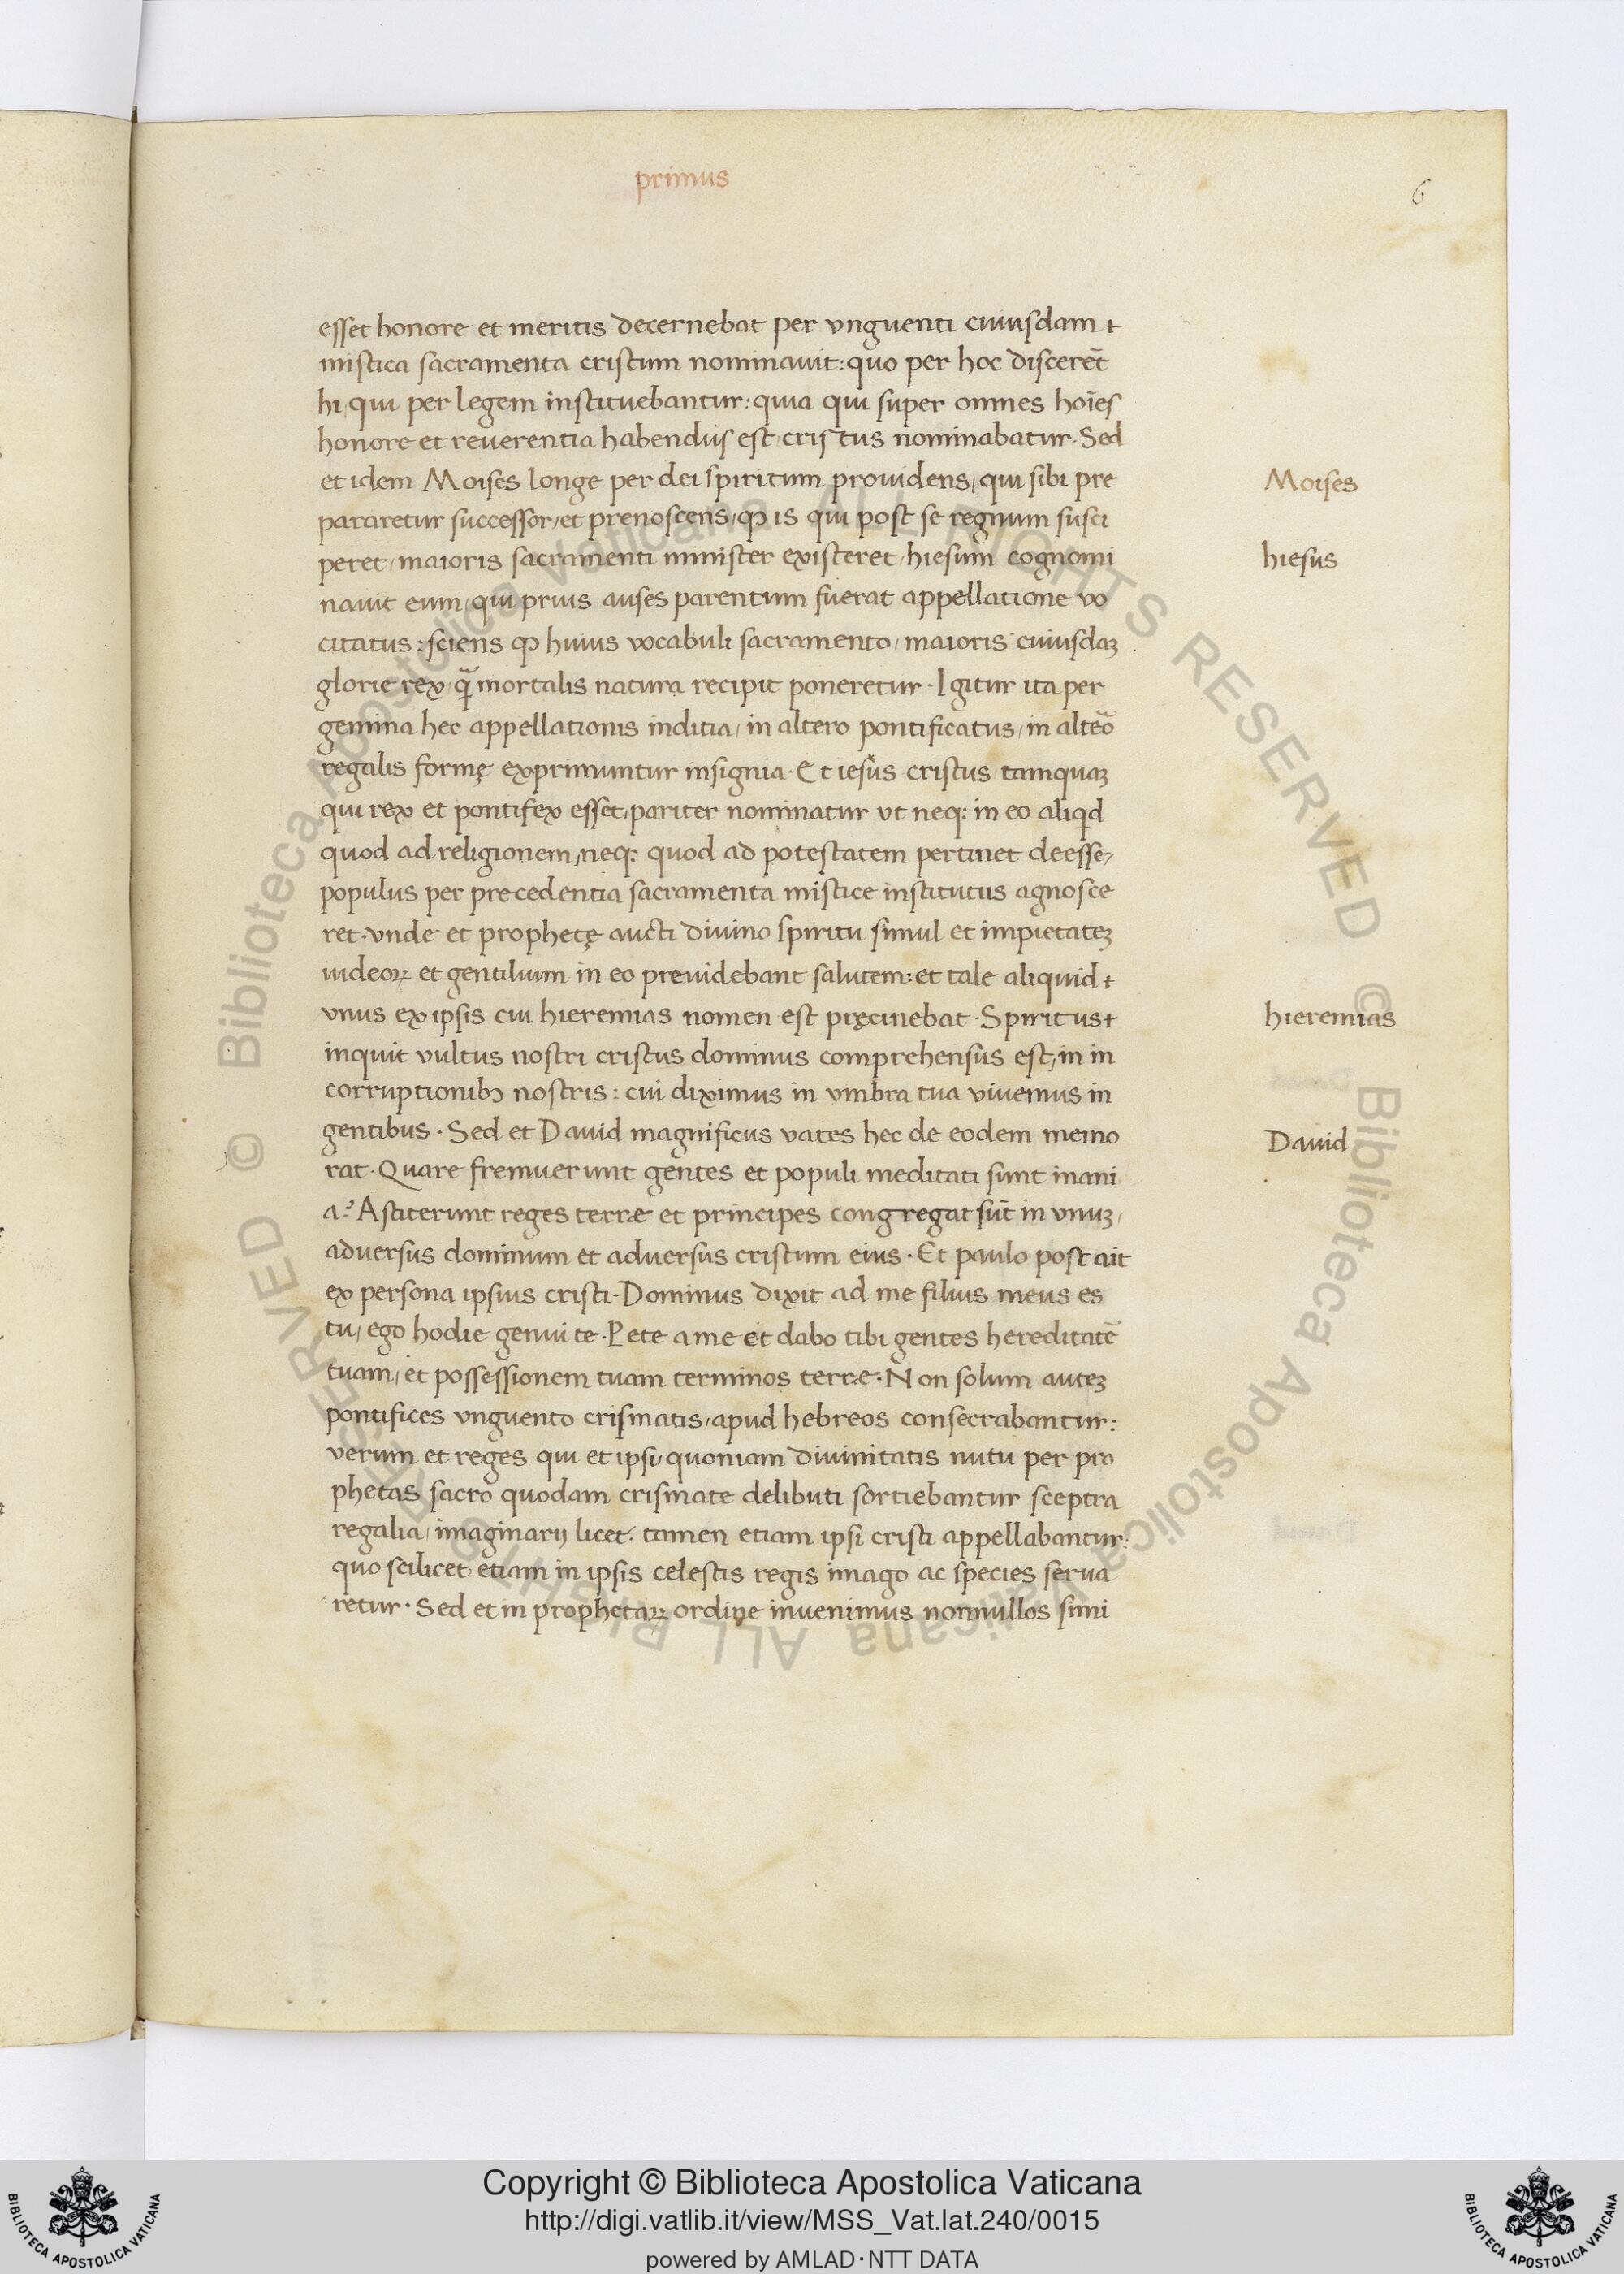 primus
6
esset honore et meritis decernebat per vnguenti cuiusdam
mistica sacramenta cristum nominauit: quo per hoc discerēt
hi, qui per legem instituebantur: quia qui super omnes hoīes
honore et reuerentia habendus est, cristus nominabatur. Sed
et idem Moises longe per dei spiritum prouidens, qui sibi pre
Moises
pararetur successor, et prenoscens, ꝙ is qui post se regnum susci
peret, maioris sacramenti minister existeret, hiesum cognomi
hiesus
nauit eum, qui prius auses parentum fuerat appellatione vo
citatus: sciens ꝙ huius vocabuli sacramento, maioris cuiusdaꝫ
glorie rex, qᷓ mortalis natura recipit poneretur. Igitur ita per
gemina hec appellationis inditia, in altero pontificatus, in alteᷓo
regalis formę exprimuntur insignia. Et iesus cristus tamquaꝫ
qui rex et pontifex esset, pariter nominatur vt neq: in eo aliqid
quod ad religionem, neq: quod ad potestatem pertinet deesse,
populus per precedentia sacramenta mistice institutus agnosce
ret. vnde et prophetę aucti diuino spiritu simul et impietateꝫ
iudeoꝝ et gentilium in eo preuidebant salutem: et tale aliquid
vnus ex ipsis cui hieremias nomen est pręcinebat. Spiritus
hieremias
inquit vultus nostri cristus dominus comprehensus est, in in
corruptionibꝫ nostris: cui diximus in vmbra tua viuemus in
gentibus. Sed et Dauid magnificus vates hec de eodem memo
Dauid
rat. Quare fremuerunt gentes et populi meditati sunt inani
a? Astiterunt reges terræ et principes congregat sūt in vnuꝫ,
aduersus dominum et aduersus cristum eius. Et paulo post ait
ex persona ipsius cristi. Dominus dixit ad me filius meus es
tu, ego hodie genui te. Pete a me et dabo tibi gentes hereditatē
tuam, et possessionem tuam terminos terræ. Non solum auteꝫ
pontifices vnguento crismatis, apud hebreos consecrabantur:
verum et reges qui et ipsi, quoniam diuinitatis nutu per pro
phetas sacro quodam crismate delibuti sortiebantur sceptra
regalia, imaginarij licet: tamen etiam ipsi cristi appellabantur:
quo scilicet etiam in ipsis celestis regis imago ac species serua
retur. Sed et in prophetaꝝ ordine inuenimus nonnullos simi
© Biblioteca Apostolica Vaticana ALL RIGHTS RESERVED
© Biblioteca Apostolica Vaticana ALL RIGHTS RESERVED
Copyright © Biblioteca Apostolica Vaticana
http://digi.vatlib.it/view/MSS_Vat.lat.240/0015
powered by AMLAD·NTT DATA
BIBLIOTECA APOSTOLICA VATICANA
BIBLIOTECA APOSTOLICA VATICANA